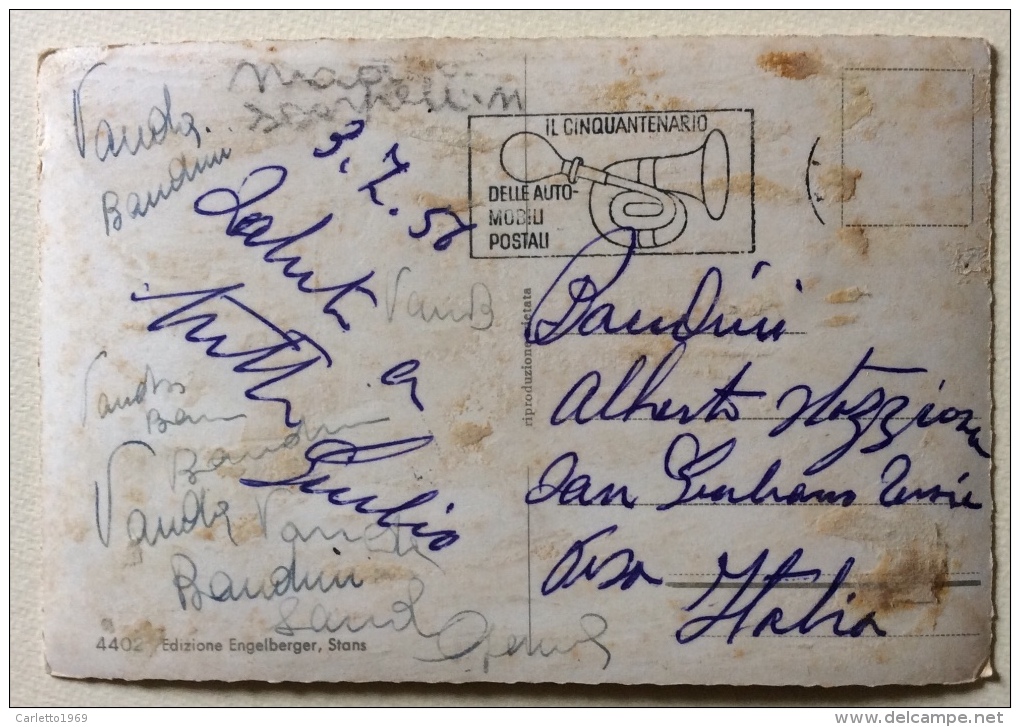 Vanda
Bandini
3.7.56
Saluti a
tutti
Vand B
Vanda
Ban
Bandini
Vanda Vanda
Bandini
IL CINQUANTENARIO
DELLE AUTO-
MOBILI
POSTALI
riproduzione vietata
Bandini
Alberto Stazzione
San Giuliano Terme
Pisa
Italia
4402 Edizione Engelberger, Stans
Carletto1969
delcampe.net